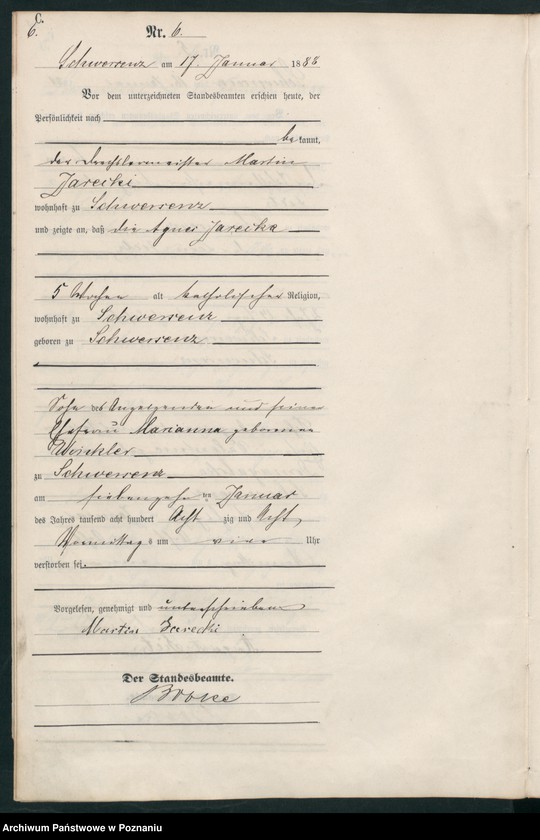 C.
6.
Nr. 6.
Schwersenz am 17 Januar 1888
Vor dem unterzeichneten Standesbeamten erschien heute, der
Persönlichkeit nach
bekannt,
der Drechslermeister Martin
Jarecki
wohnhaft zu Schwersenz
und zeigte an, daß die Agnes Jarecka
5 Wochen alt katholischer Religion,
wohnhaft zu Schwersenz
geboren zu Schwersenz
des Anzeigenden und seiner
Ehefrau Marianna geborenen
zu Schwersenz
am siebenzehnten Januar
des Jahres tausend acht hundert Acht zig und Acht,
Vormittags um vier Uhr
verstorben sei.
Vorgelesen, genehmigt und unterschrieben
Martin Jarecki
Der Standesbeamte.
Archiwum Państwowe w Poznaniu